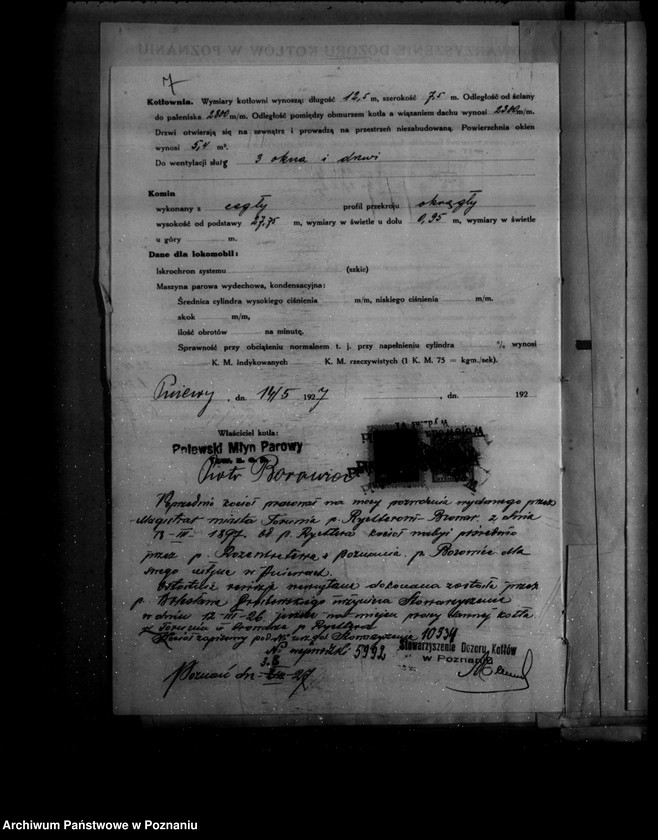 7
Kotłownia. Wymiary kotłowni wynoszą: długość 12,5 m, szerokość 7,5 m. Odległość od ściany
do paleniska 2800 m/m. Odległość pomiędzy obmurzem kotła a wiązaniem dachu wynosi 2300 m/m.
Drzwi otwierają się na zewnątrz i prowadzą na przestrzeń niezabudowaną. Powierzchnia okien
wynosi 5,4 m².
Do wentylacji służą 3 okna i drzwi
Komin
wykonany z cegły profil przekroju okrągły
wysokość od podstawy 27,75 m, wymiary w świetle u dołu 0,95 m, wymiary w świetle
u góry m.
Dane dla lokomobil:
Iskrochron systemu (szkic)
Maszyna parowa wydechowa, kondensacyjna:
Średnica cylindra wysokiego ciśnienia m/m, niskiego ciśnienia m/m.
skok m/m,
ilość obrotów na minutę.
Sprawność przy obciążeniu normalnem t. j. przy napełnieniu cylindra % wynosi
K. M. indykowanych K. M. rzeczywistych (1 K. M. 75 = kgm./sek).
Pniewy, dn. 14/5 1927 , dn. 192
Właściciel kotła:
Pniewski Młyn Parowy
Piotr Borowicz
Poprzednio kocioł pracował na mocy pozwolenia wydanego przez
Magistrat miasta Torunia p. Rychterowi z dnia
1897. od p. Rychtera kocioł nabył
przez p. z Poznania p. Borowicz dla
swego młyna w Pniewach.
Ostatnia rewizja wewnętrzna dokonana została przez
p. Bolesława inżyniera Stowarzyszenia
w dniu 12-III-26 na miejscu pracy dawnej kotła
w Toruniu u p. Rychtera
Kocioł zapisany pod № Stowarzyszenia 10334
№ 5992
Stowarzyszenie Dozoru Kotłów
w Poznaniu
Poznań dn. 27
Archiwum Państwowe w Poznaniu